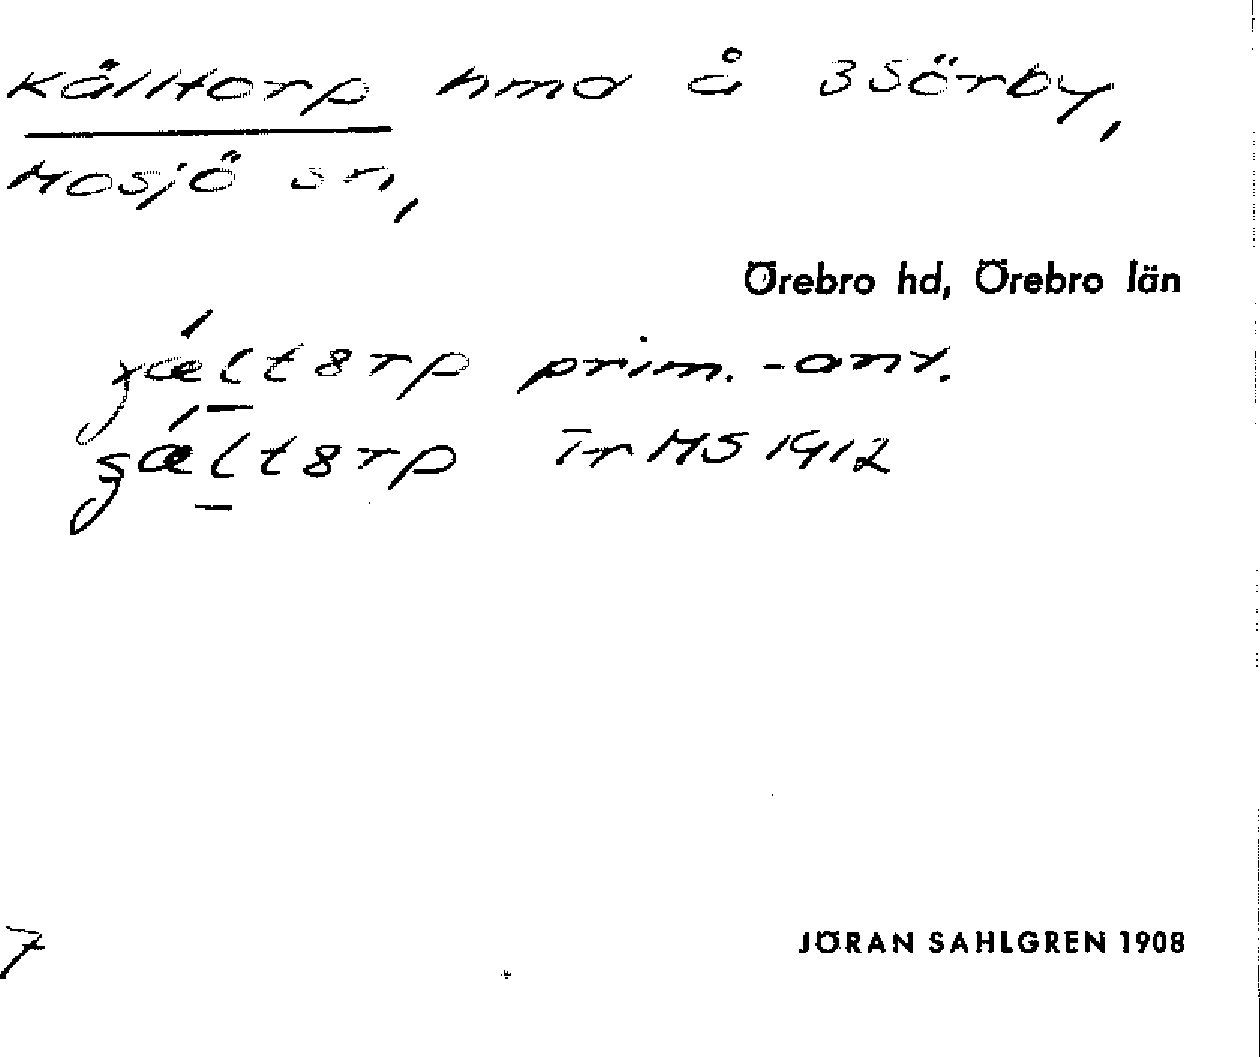 Källtorp hmd å 3 Sörby,
Mosjö sn,
Örebro hd, Örebro län
prim.-ant.
Tr MS 1912
7
JÖRAN SAHLGREN 1908